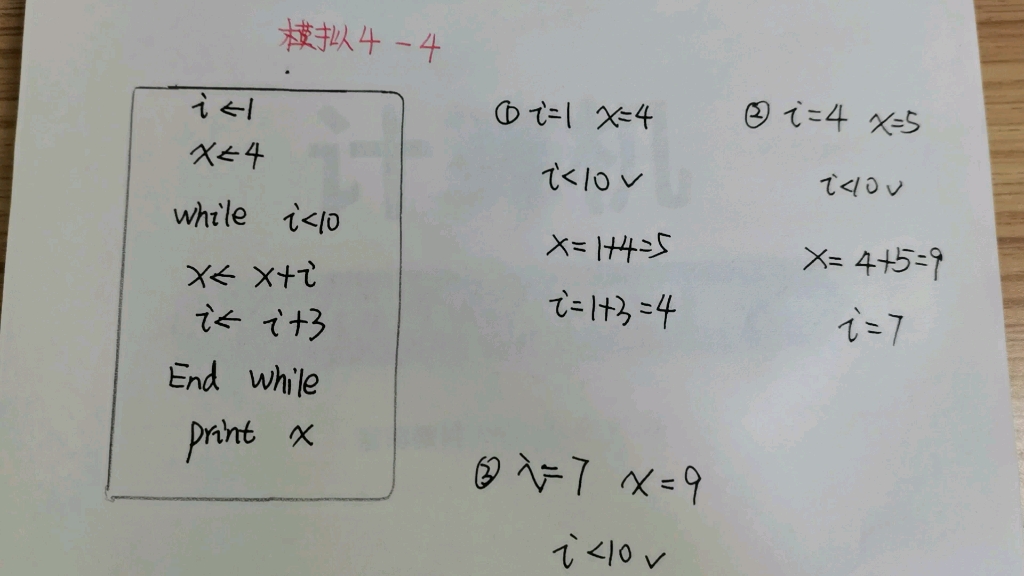 模拟4-4
i←1
x←4
while i<10
x← x+i
i← i+3
End while
print x
① i=1 x=4
i<10 ✓
x=1+4=5
i=1+3=4
② i=4 x=5
i<10 ✓
x= 4+5=9
i=7
③ i=7 x=9
i<10 ✓